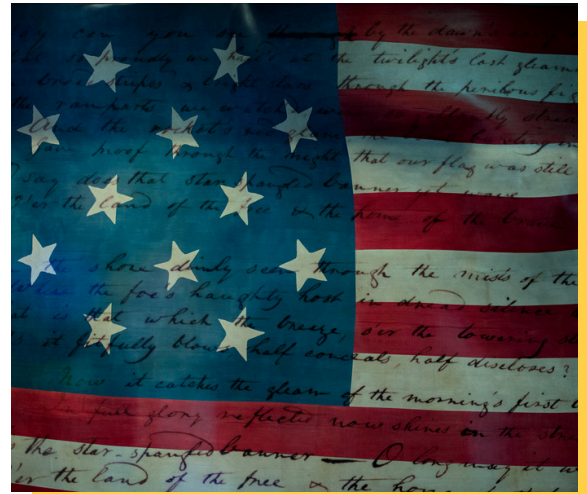 say can you see through by the dawn's
so proudly we hail'd at the twilight's last gleam
broad stripes & bright stars through the perilous fig
the ramparts we watch'd
And the rocket's red glare
gave proof through the night that our flag was still
say does that star spangled banner yet wave
O'er the land of the free & the home of the brave
the shore dimly seen through the mists of the
Where the foe's haughty host in dread silence
is that which the breeze, o'er the towering
it fitfully blows, half conceals, half discloses?
Now it catches the gleam of the morning's first
In full glory reflected now shines in the
the star-spangled banner — O long may it w
'er the land of the free & the